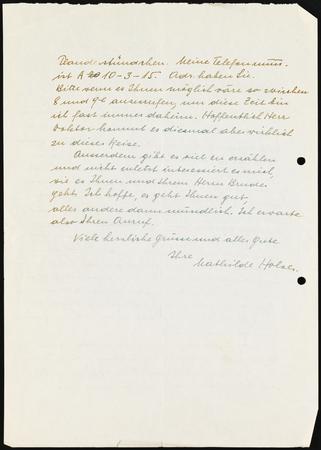 Plauderstündchen. Meine Telefonnum.
ist A 10-3-15. Adr. haben Sie.
Bitte wenn es Ihnen möglich wäre so zwischen
8 und 9h anzurufen, um diese Zeit bin
ich fast immer daheim. Hoffentlich Herr
Doktor kommt es diesmal aber wirklich
zu dieser Reise.
Ausserdem gibt es viel zu erzählen
und nicht zuletzt interessiert es mich,
wie es Ihnen und Ihrem Herrn Bruder
geht. Ich hoffe, es geht Ihnen gut,
alles andere dann mündlich. Ich erwarte
also Ihren Anruf.
Viele herzliche Grüsse und alles Gute
Ihre
Mathilde